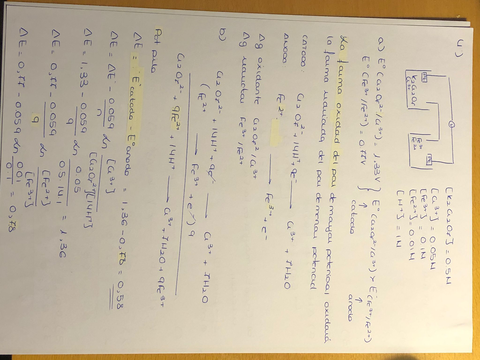 4)
[K2Cr2O7] = 0.5M
[Cr3+] = 0.05M
[Fe3+] = 0.1M
[Fe2+] = 0.01M
[H+] = 1M
a) E°(Cr2O7²⁻/Cr3+) = 1.33V
E°(Fe3+/Fe2+) = 0.77V
E°(Cr2O7²⁻/Cr3+) > E(Fe3+/Fe2+)
catodo anodo
La forma oxidada del par de mayor potencial oxidará
la forma reducida del par de menor potencial
catodo Cr2O7²⁻ + 14H+ + 9e- → Cr3+ + 7H2O
anodo Fe2+ → Fe3+ + e-
Ag oxidante Cr2O7²⁻/Cr3+
Ag reductor Fe3+/Fe2+
b) Cr2O7²⁻ + 14H+ + 9e- → Cr3+ + 7H2O
(Fe2+ → Fe3+ + e-) 9
Cr2O7²⁻ + 9Fe2+ + 14H+ → Cr3+ + 7H2O + 9Fe3+
Pot pila
ΔE = E°catodo - E°anodo = 1.36 - 0.78 = 0.58
ΔE = ΔE - 0.059/n ln [Cr3+]/[Cr2O7²⁻][14H+]
ΔE = 1.33 - 0.059/9 ln 0.05/0.5 14 = 1.36
ΔE = 0.77 - 0.059/9 ln [Fe3+]/[Fe2+]
ΔE = 0.77 - 0.059 ln 0.01/0.1 = 0.78